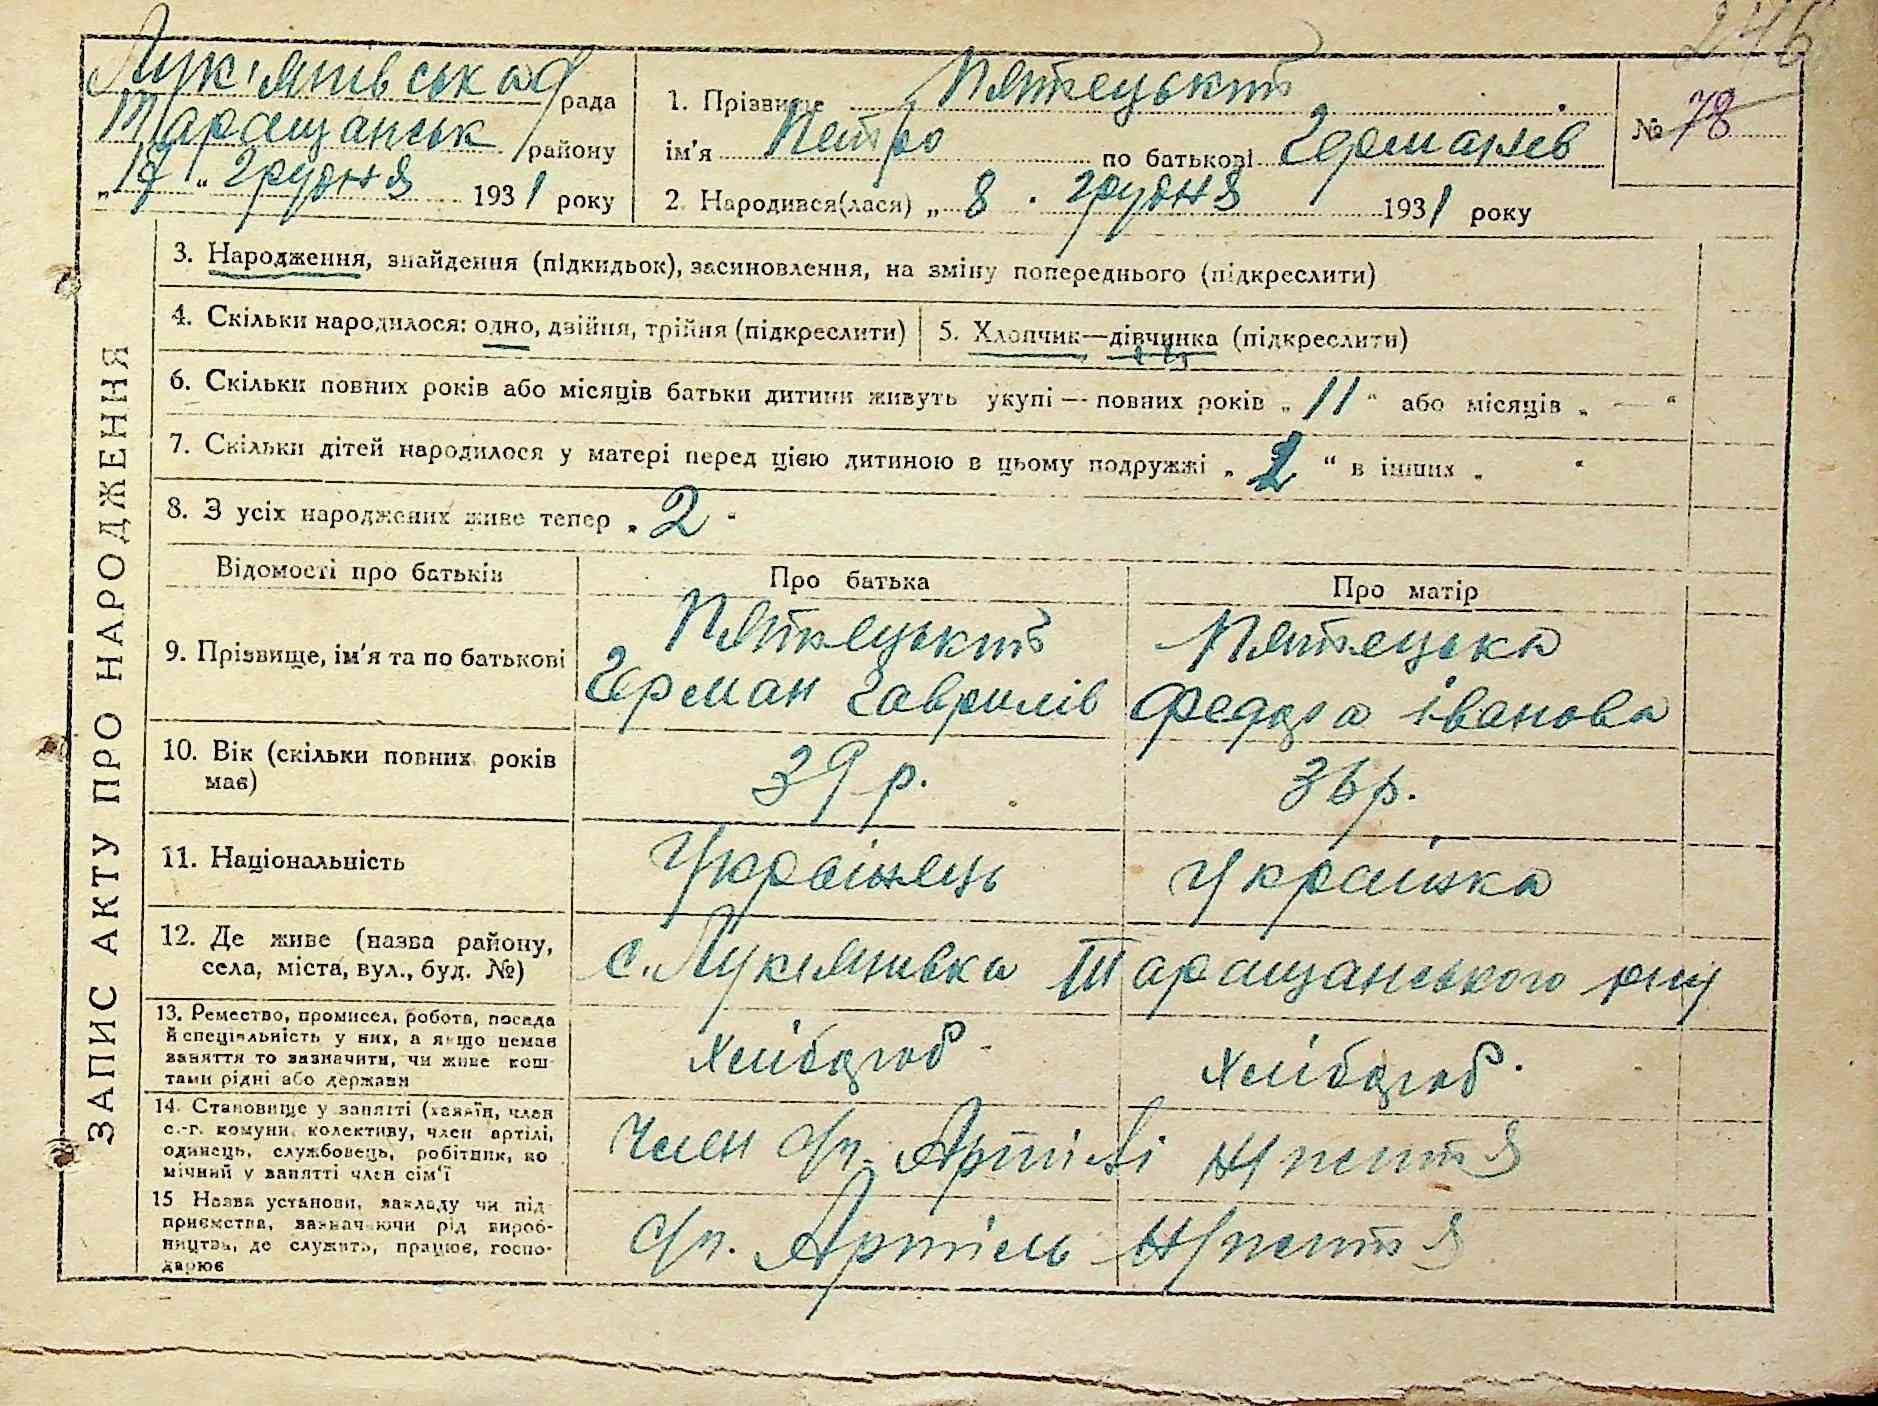 246
Лук'янівська рада
Таращанськ району
„17“ Грудня 1931 року
1. Прізвище Пятецький
ім'я Петро по батькові Германів
2. Народився(лася) „8. грудня 1931 року
№ 78
ЗАПИС АКТУ ПРО НАРОДЖЕННЯ
3. Народження, знайдення (підкидьок), засиновлення, на зміну попереднього (підкреслити)
4. Скільки народилося: одно, двійня, трійня (підкреслити)
5. Хлопчик—дівчинка (підкреслити)
6. Скільки повних років або місяців батьки дитини живуть укупі — повних років „11“ або місяців „—“
7. Скільки дітей народилося у матері перед цією дитиною в цьому подружжі „2“ в інших „ “
8. З усіх народжених живе тепер „2“
Відомості про батьків Про батька Про матір
9. Прізвище, ім'я та по батькові
Пятецький
Герман Гаврилів
Пятецька
Федора Іванова
10. Вік (скільки повних років має)
39 р.
36 р.
11. Національність
Українець
Українка
12. Де живе (назва району,
села, міста, вул., буд. №)
с. Лукянивка Таращанського р-ну
13. Ремество, промисел, робота, посада
й спеціяльність у них, а якщо немає
заняття то зазначити, чи живе кош-
тами рідні або держави
Хлібороб -
Хлібороб.
14. Становище у занятті (хазяїн, член
с.-г. комуни, колективу, член артілі,
одинець, службовець, робітник, по
мічний у занятті член сім'ї
Член с/г. Артілі
15 Назва установи, закладу чи під-
приємства, зазначаючи рід вироб-
ництва, де служить, працює, госпо-
дарює
с/г. Артіль